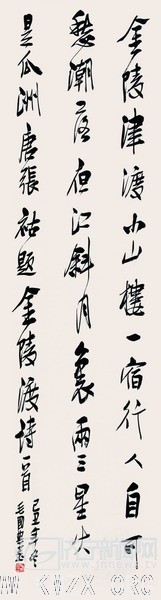 金陵津渡小山樓一宿行人自可
愁潮落夜江斜月裏兩三星火
是瓜洲唐張祜題金陵渡詩一首
毛國典